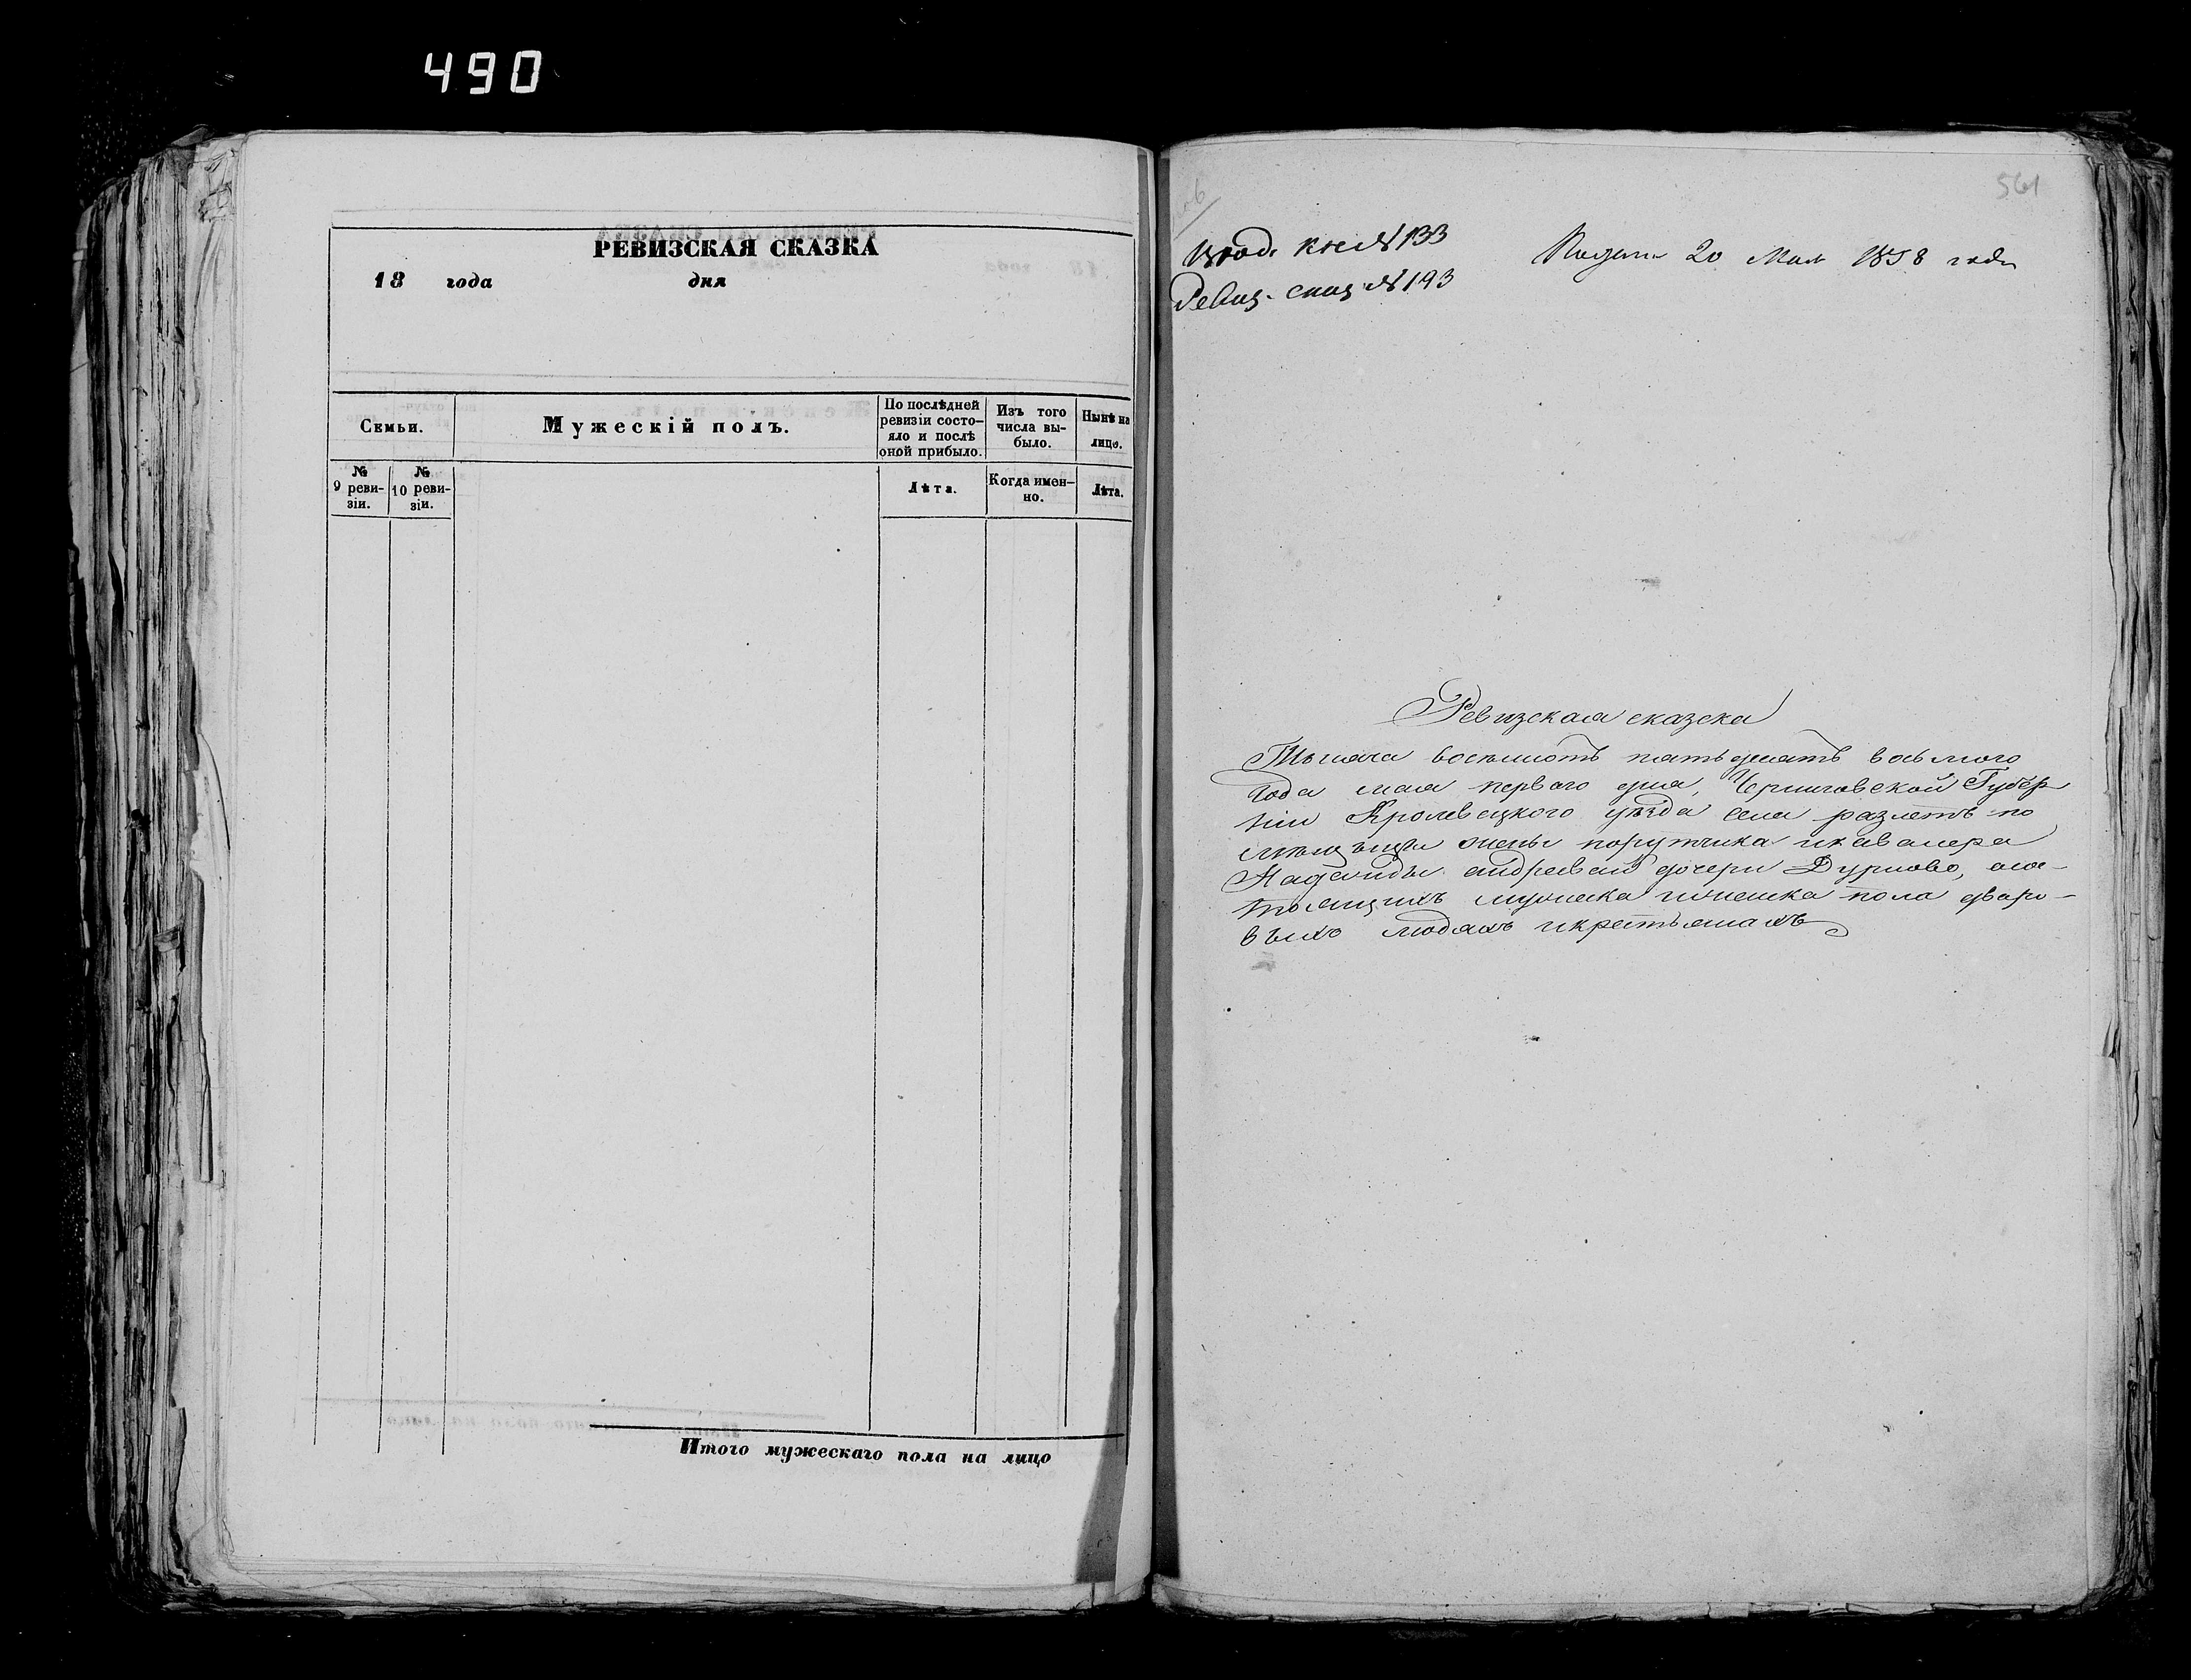 490
РЕВИЗСКАЯ СКАЗКА
18 года дня
Семьи.
Мужескій полъ.
По послѣдней ревизіи состо-
яло и послѣ
оной прибыло.
Изъ того
числа вы-
было.
Нынѣ на
лицо.
№
9 реви-
зіи.
№
10 реви-
зіи.
Лѣта.
Когда имен-
но.
Лѣта.
Итого мужескаго пола на лицо
561
Вход. кн. № 133
Ревиз. сказ. № 193
Подана 20 Мая 1858 года
Ревизская сказска
Тысяча восемьсотъ пятьдесятъ восьмого
года мая первого дня, Черниговской Губер
ніи Кролевецкого уѣзда села разлетъ по
мѣщицы жены порутчика икавалера
Надежды андреевой дочери Дурново, о со-
тоящихъ мужеска иженска пола дваро-
выхъ людяхъ икрестьянахъ